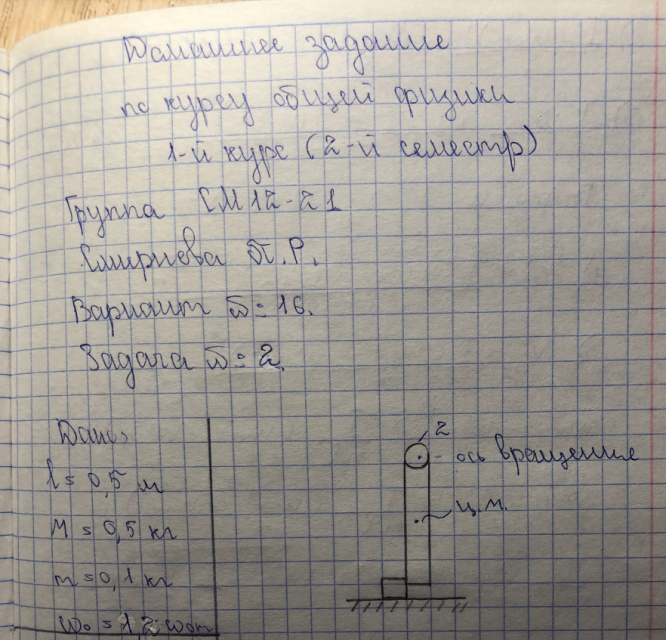 Домашнее задание
по курсу общей физики
1-й курс (2-й семестр)
Группа СМ12-21
Смирнева П.Р.
Вариант №=16.
Задача №=2.
Дано:
l = 0,5 м
M = 0,5 кг
m = 0,1 кг
ω₀ = 1,2 ω₀m
2
- ось вращение
ц.м.